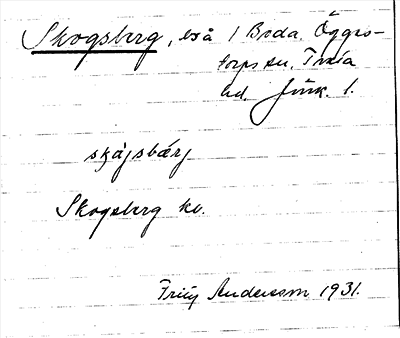 Skogsberg, lså 1 Boda. Öggers-
torps sn. Tveta
hd. Jönk. l.
skåjsbærj
Skogsberg kv.
Fritz Andersson 1931.